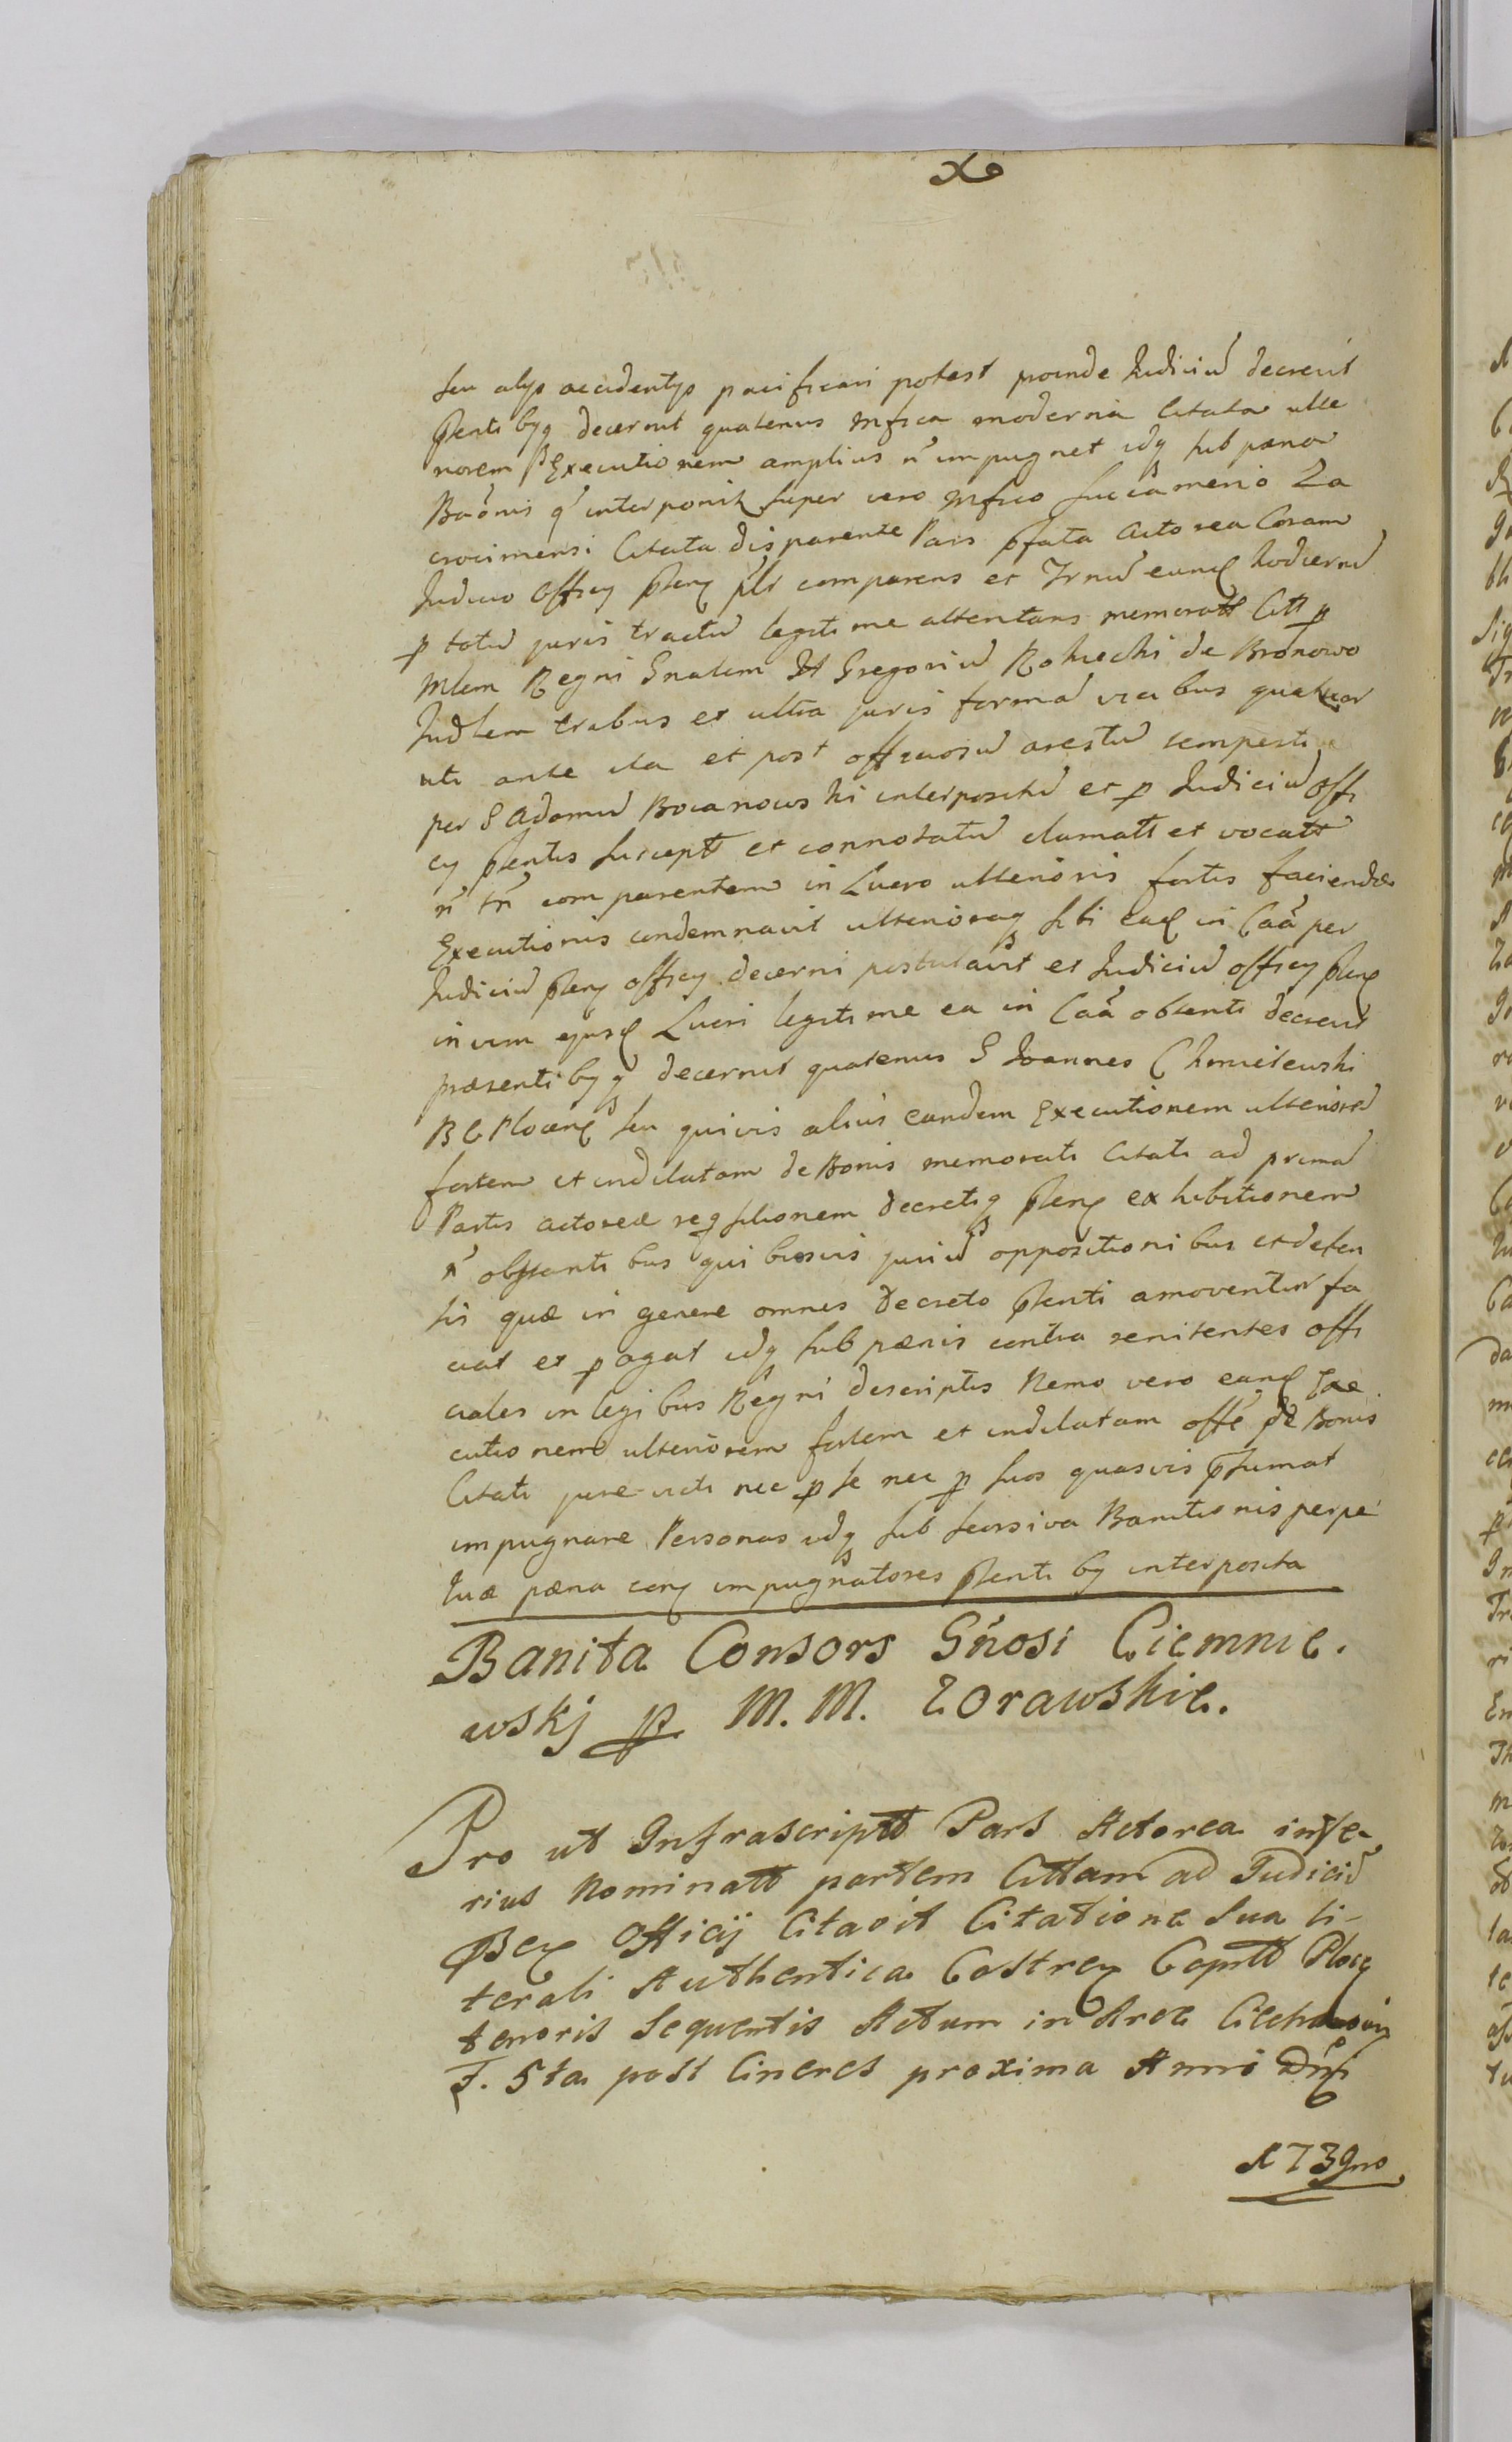 seu alijs accidentijs pacificari potest proinde Judiciũ decrevit
p̃senti bq̨ decernit quatenus mfica moderna Citata ulte
riorem Executionem amplius ñ impugnet idq̨ sub pæna
Baõnis q̃ interponit super vero mfico
Citata disparente Pars p̃fata Actorea Coram
Judicio Officy p̃sen p̃lr comparens et Trnũ eund hodiernũ
p totũ juris tractũ legitime attentans memoratt Citt p
Mlem Regni Gnalem Gregoriũ Rokicki de Bronowo
Judlem trabus et ultra juris formã vicibus quatuor
uti ante ita et post officiosũ arestũ tempesti
per G Adamũ Bocanowski interpositũ et p Judiciũ Offi
cy p̃sentis suscept et connotatũ clamatt et vocatt
ñ tñ comparentem in Lucro ulterioris fortis faciendæ
Executionis condemnavit ulterioraq̨ sibi ead in Caã per
Judiciũ p̃sen officy decerni postulavit et Judiciũ officy p̃sen
in vim ejusd Lucri legitime ea in Caã obtenti decrevit
præsenti bq̨ decernit quatenus G Joannes Chmielewski
B C Plocen seu quivis alius eandem Executionem ulteriorẽ
fortem et indilatam de Bonis memorati Citati ad primã
Partis actoreæ reqsitionem decretiq̨ p̃sen exhibitionem
ñ obstantibus quibusvis juriũ oppositionibus et defen
sis quæ in genere omnes decreto p̃senti amoventur fa
ciat et p agat idq̨ sub pænis contra renitentes offi
ciales in legibus Regni descriptis Nemo vero eand Exe
cutionem ulteriorem fortem et indilatam offe de Bonis
Citati jure victi nec p se nec p suos quasvis p̃sumat
impugnare Personas idq̨ sub seorsiva Banitionis perpe
tuæ pæna con impugnatores p̃senti bq̨ interposita
Banita Consors Gñosi Ciemnie.
wskj p M. M. Zorawskie.
Pro ut Infrascriptt Pars Actorea infe-
rius Nominatt partem Cittam ad Judiciũ
p̃sen Officij Citavit Citatione Sua li-
terali Authentica Castren Capitt Plocen
tenoris Sequentis Actum in Arce Ciechanovien
F. 5ta post Cineres proxima Anno Dni
1739no